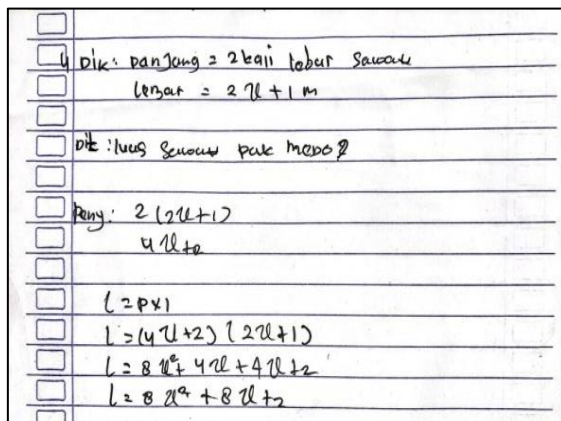 4 Dik: Panjang = 2 kali lebar sawah
lebar = 2x + 1 m
Dit : luas sawah pak mepo ?
Peny: 2 (2x+1)
4x+2
L = p x l
L = (4x+2) (2x+1)
L = 8x² + 4x + 4x + 2
L = 8x² + 8x + 2